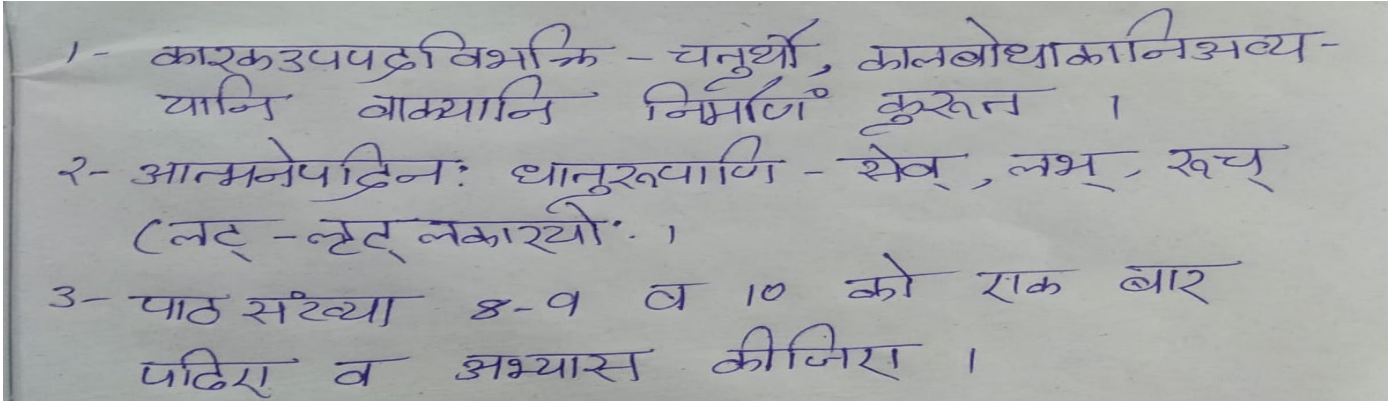 1- कारकउपपदविभक्ति - चतुर्थी, कालबोधाकानिअव्य-
यानि वाक्यानि निर्माणं कुरूत ।
२- आत्मनेपदिनः धातुरूपाणि - सेव्, लभ्, रूच्
(लट् - लृट् लकारयोः ।
3- पाठ संख्या 8-9 व 10 को एक बार
पढिए व अभ्यास कीजिए ।